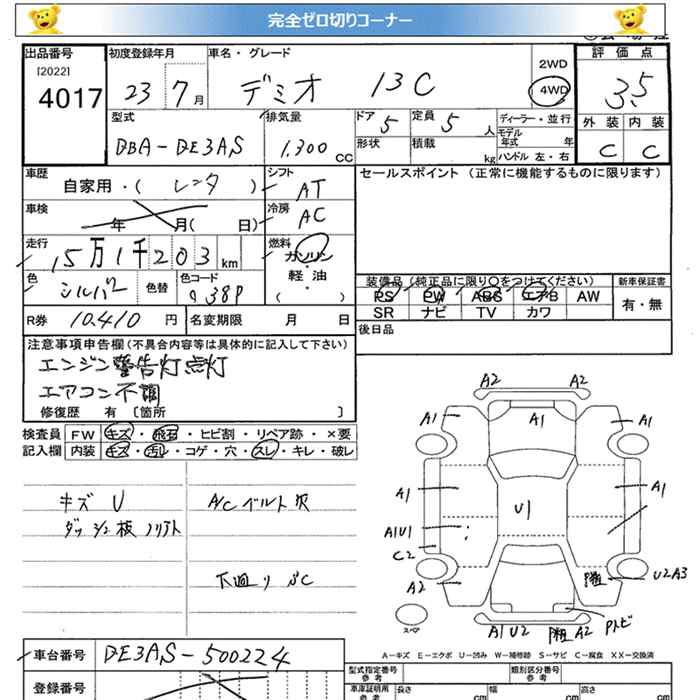 完全ゼロ切りコーナー
出品番号 初度登録年月 車名・グレード 評価点
[2022] 4017
23 7月 デミオ 13C 2WD 4WD 3.5
型式 排気量 ドア 5 定員 5人 ディーラー・並行 外装 内装
DBA-DE3AS 1,300cc 形状 積載 kg モデル年式 年 C C
ハンドル 左・右
車歴 自家用・( レンタ ) シフト AT セールスポイント (正常に機能するものに限ります)
車検 年 月( 日) 冷房 AC
走行 15万1千203km 燃料 ガソリン 軽油 ・ ( )
色 シルバー 色替 色コード 38P
装備品 (純正品に限り○をつけてください) 新車保証書
PS PW ABS エアB AW 有・無
SR ナビ TV カワ
R券 10,410円 名変期限 月 日 後日品
注意事項申告欄(不具合内容等は具体的に記入して下さい)
エンジン警告灯点灯
エアコン不調
修復歴 有 〔箇所 〕
検査員 FW キズ・飛石・ヒビ割・リペア跡・×要
記入欄 内装 キズ・汚レ・コゲ・穴・スレ・キレ・破レ
キズ U A/Cベルト欠
下廻り SC
A2 A2
A1 A1 A1
A1 A1
U1
A1U1
C2
A2 U2A3
A1U2 A2
スペア
A－キズ E－エクボ U－凹み W－補修跡 S－サビ C－腐食 XX－交換済
車台番号 DE3AS-500224
登録番号
型式指定番号 参考 類別区分番号 参考
車庫証明用 参考 長さ cm 幅 cm 高さ cm